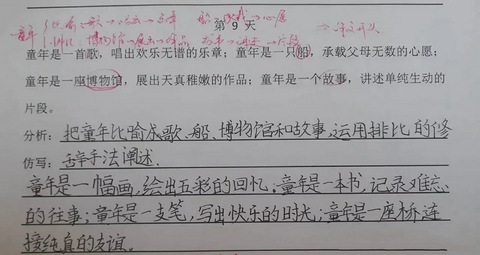 第 9 天
童年是一首歌，唱出欢乐无谐的乐章；童年是一只船，承载父母无数的心愿；
童年是一座博物馆，展出天真稚嫩的作品；童年是一个故事，讲述单纯生动的
片段。
分析：把童年比喻成歌、船、博物馆和故事，运用排比的修
仿写：辞手法阐述.
童年是一幅画，绘出五彩的回忆；童年是一本书，记录难忘
的往事；童年是一支笔，写出快乐的时光；童年是一座桥，连
接纯真的友谊。